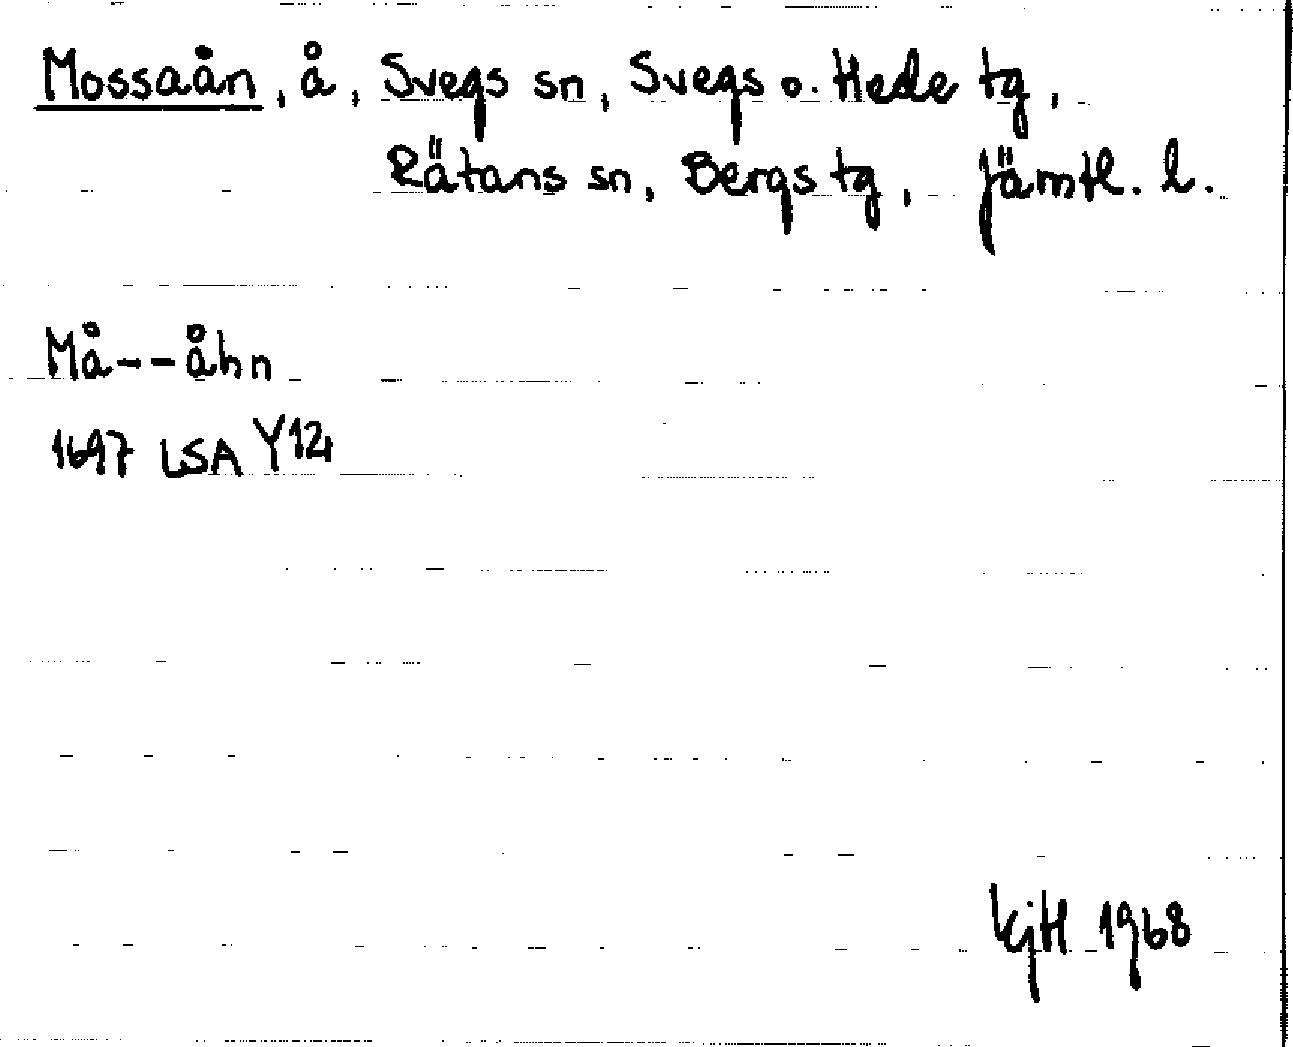 Mossaån, å, Svegs sn, Svegs o. Hede tg,
Rätans sn, Bergs tg, Jämtl. l.
Må--åhn
1697 LSA Y12
KjH 1968